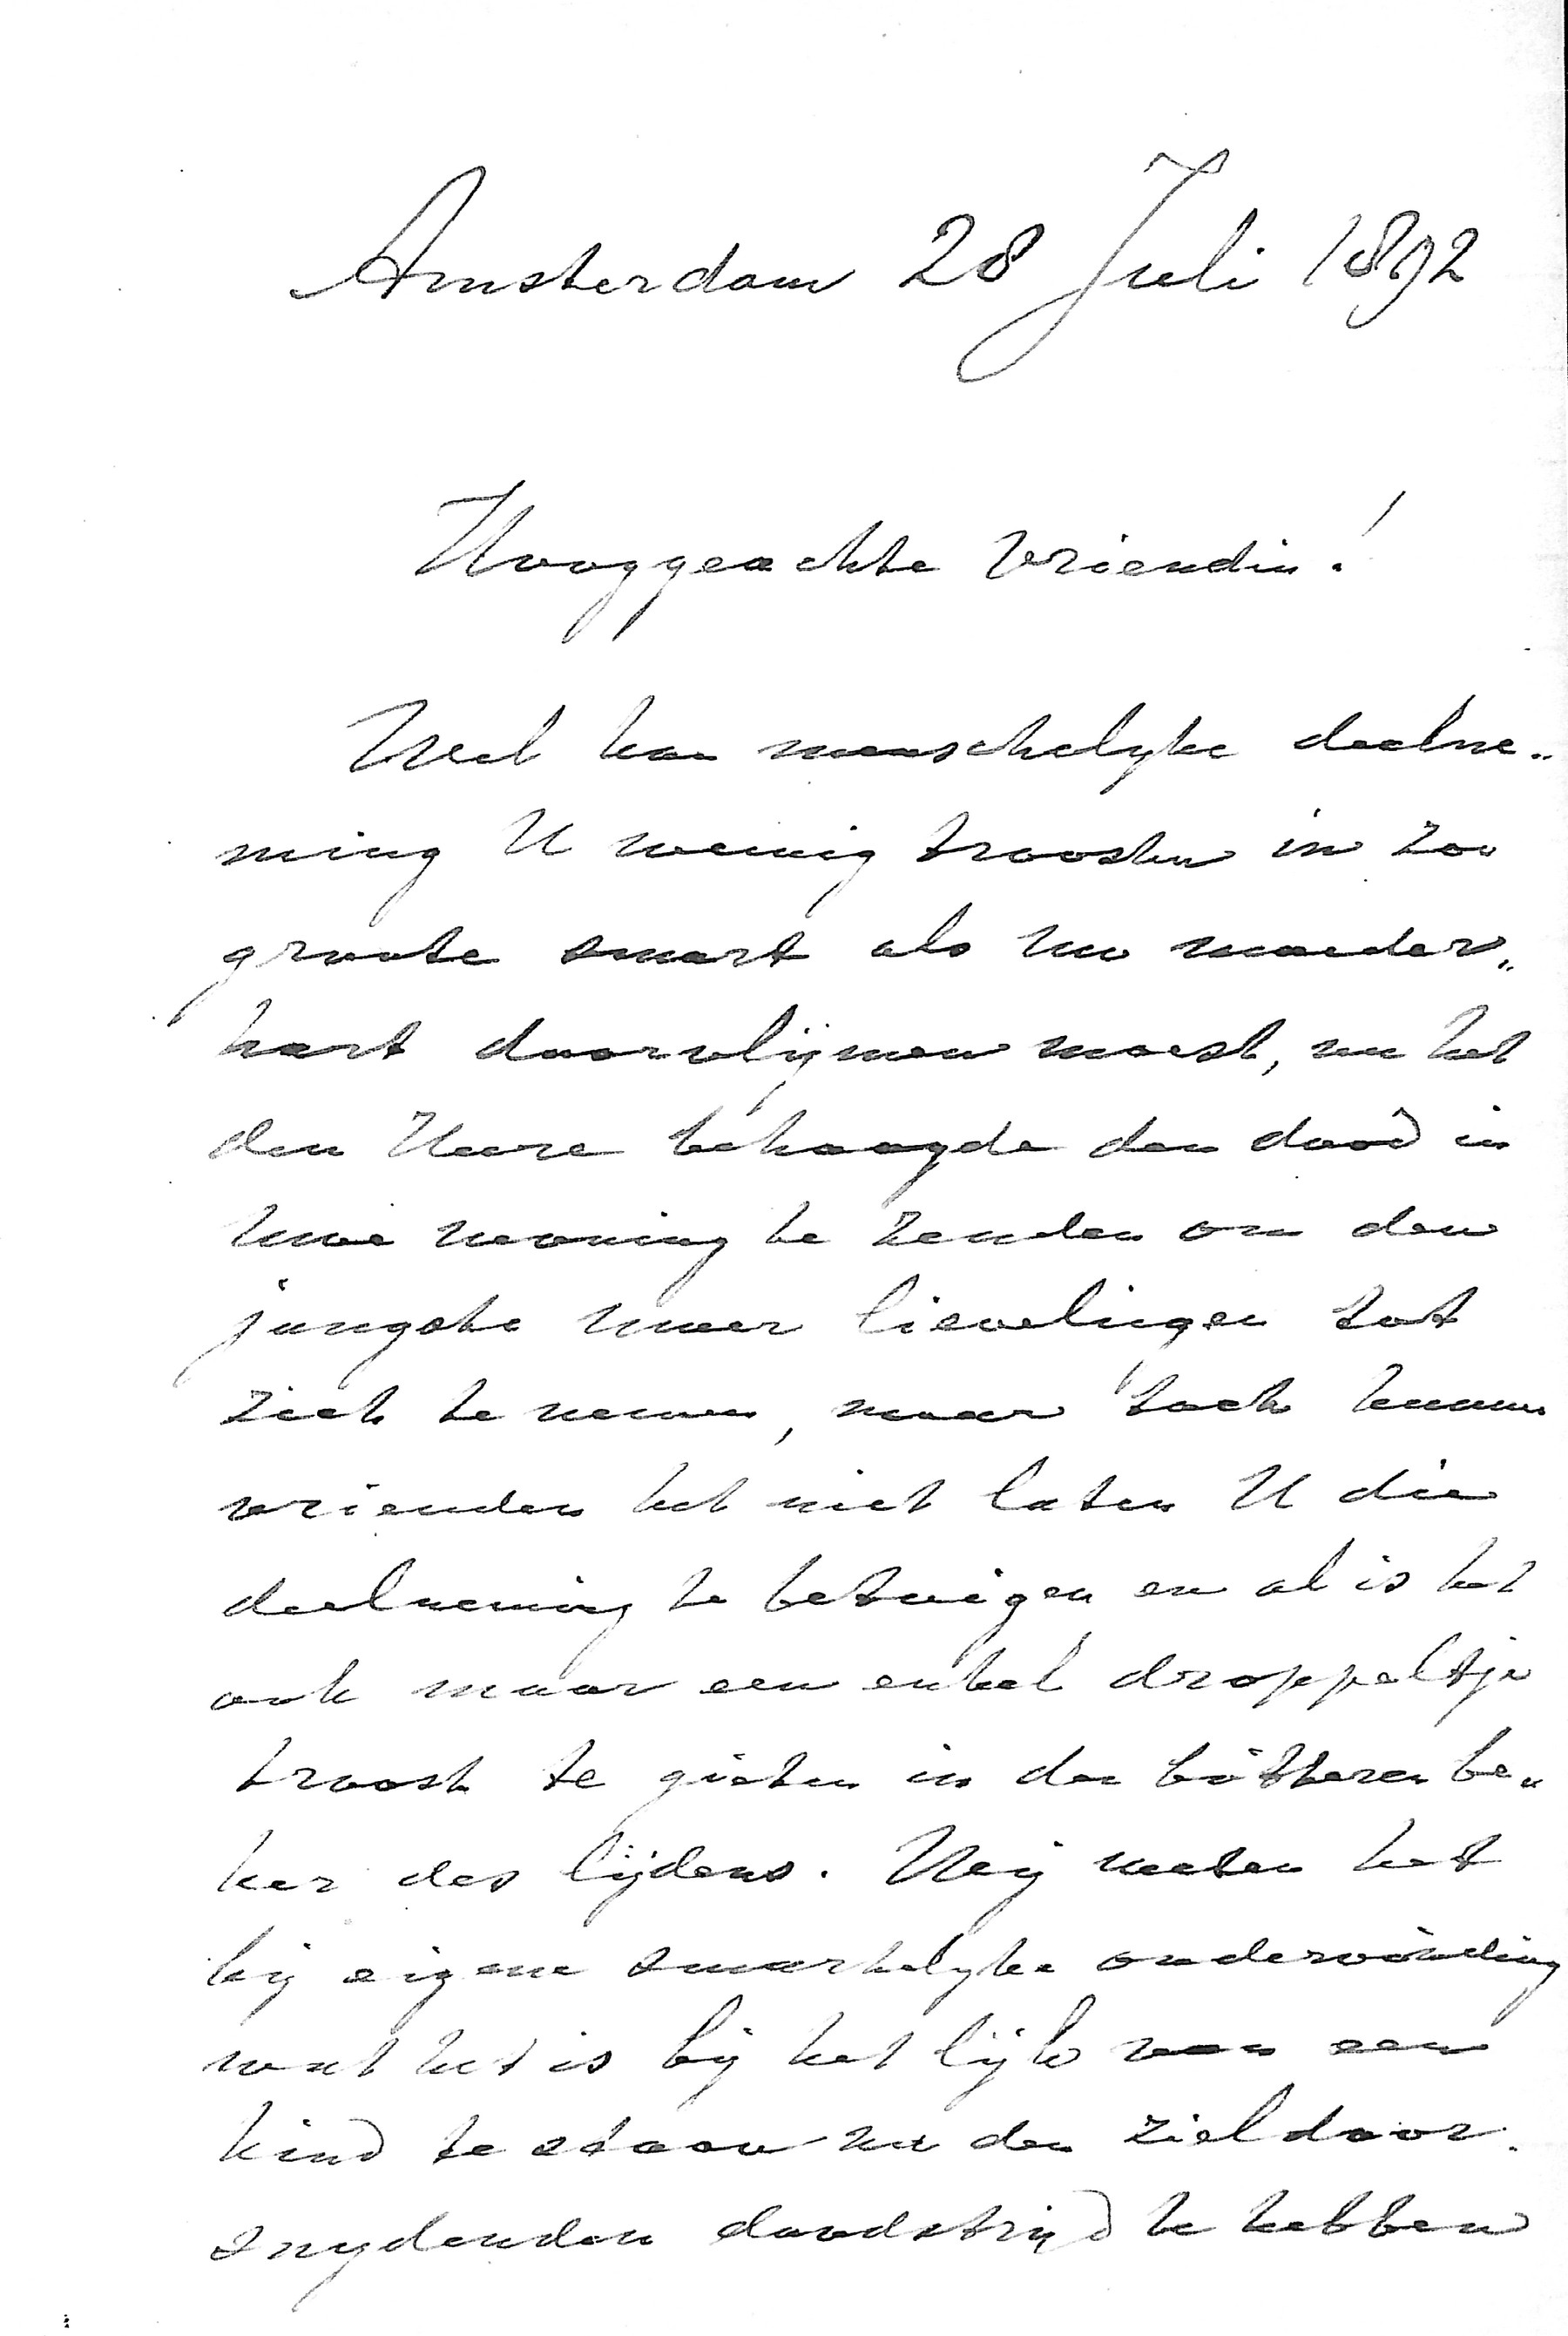 Amsterdam 28 Juli 1892
Hooggeachte Vriendin!
Wel kan menschelyke deelne„
ming U weinig troosten in zoo
groote smart als Uw moeder„
hart doorvlijmen moest, nu het
den Heere behaagde den dood in
Uwe woning te zenden om den
jongste Uwer lievelingen tot
zich te nemen, maar toch kunnen
vrienden het niet laten U die
deelneming te betuigen en al is het
ook maar een enkel droppeltje
troost te gieten in den bitteren be„
ker des lijdens. Wij weten het
bij eigene smartelyke ondervinding
wat het is bij het lijk van een
kind te staan na den zieldoor„
snydenden doodstrijd te hebben